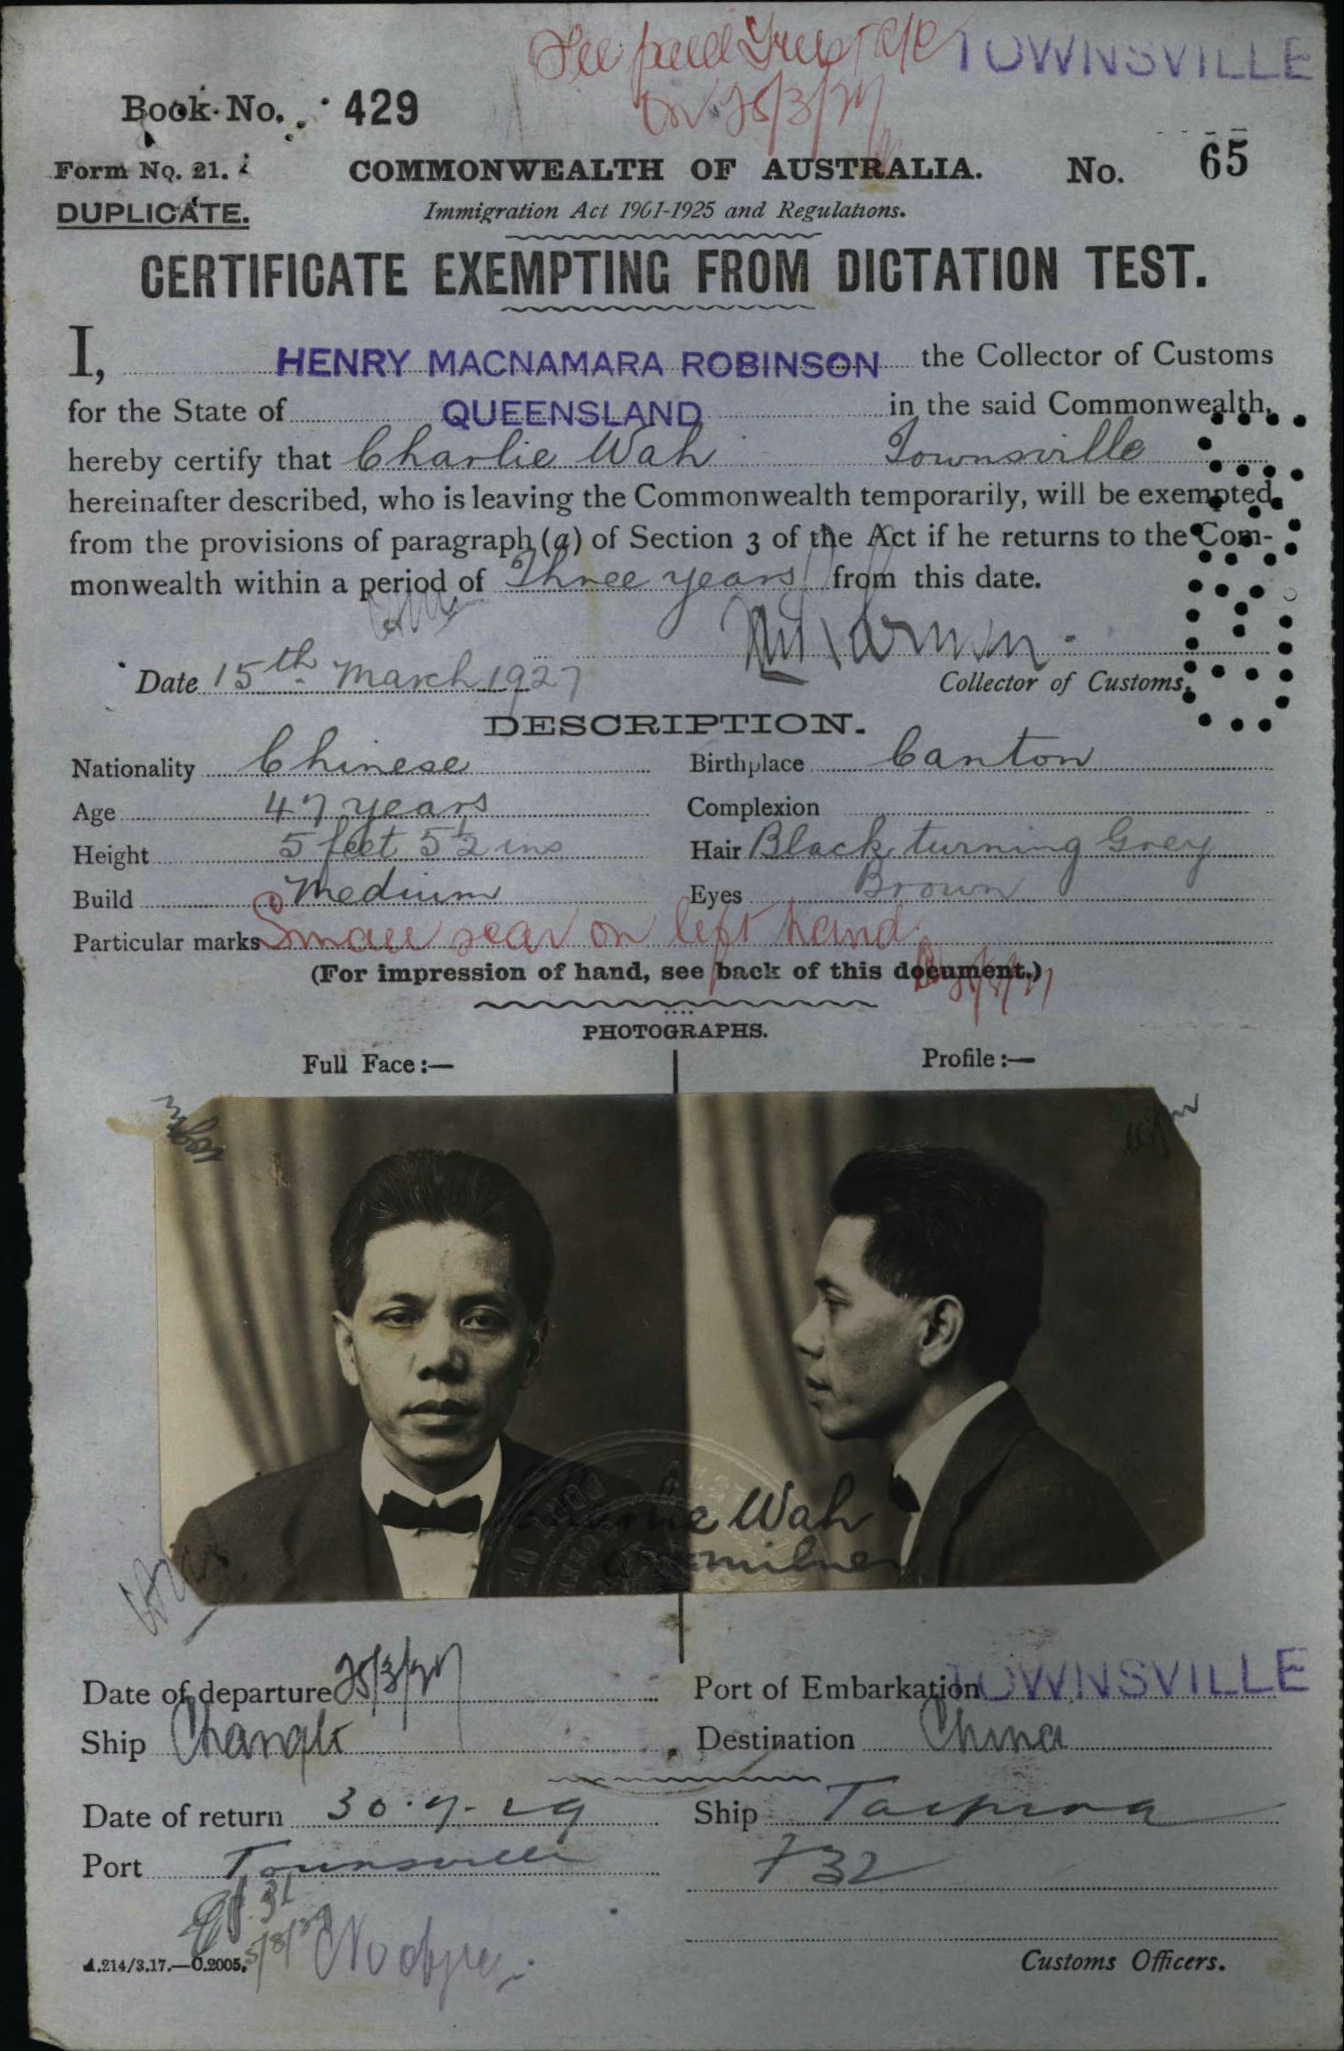 TOWNSVILLE
on 25/3/27
Book No. 429
Form No. 21.
COMMONWEALTH OF AUSTRALIA. No. 65
DUPLICATE.
Immigration Act 1901-1925 and Regulations.
CERTIFICATE EXEMPTING FROM DICTATION TEST.
I, HENRY MACNAMARA ROBINSON the Collector of Customs
for the State of QUEENSLAND in the said Commonwealth,
hereby certify that Charlie Wah Townsville
hereinafter described, who is leaving the Commonwealth temporarily, will be exempted
from the provisions of paragraph (a) of Section 3 of the Act if he returns to the Com-
monwealth within a period of Three years from this date.
Date 15th March 1927
Collector of Customs.
DESCRIPTION.
Nationality Chinese Birthplace Canton
Age 47 years Complexion
Height 5 feet 5½ ins Hair Black turning Grey
Build Medium Eyes Brown
Particular marks Small scar on left hand.
(For impression of hand, see back of this document.)
PHOTOGRAPHS.
Full Face:— Profile:—
Charlie Wah
Date of departure 25/3/27 Port of Embarkation TOWNSVILLE
Ship Changte Destination China
Date of return 30.7.29 Ship Taiping
Port Townsville 732
A.214/3.17.—C.2005.
Customs Officers.